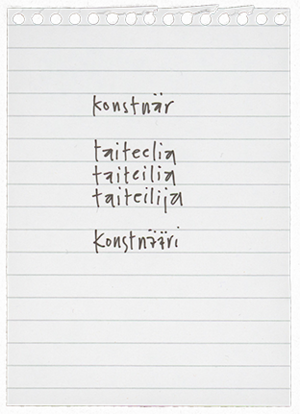 konstnär
taiteelia
taiteilia
taiteilija
konstnääri